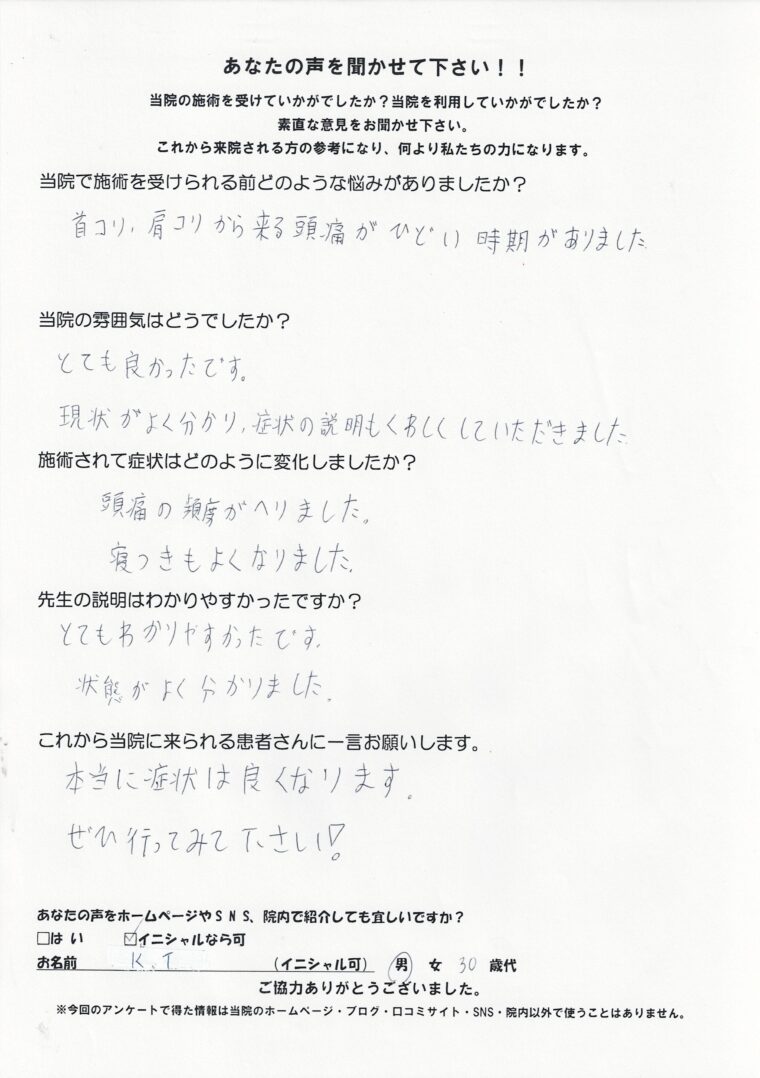 あなたの声を聞かせて下さい！！
当院の施術を受けていかがでしたか？当院を利用していかがでしたか？
素直な意見をお聞かせ下さい。
これから来院される方の参考になり、何より私たちの力になります。
当院で施術を受けられる前どのような悩みがありましたか？
首コリ，肩コリから来る頭痛がひどい時期がありました
当院の雰囲気はどうでしたか？
とても良かったです。
現状がよく分かり，症状の説明もくわしくしていただきました
施術されて症状はどのように変化しましたか？
頭痛の頻度がヘリました。
寝つきもよくなりました。
先生の説明はわかりやすかったですか？
とてもわかりやすかったです。
状態がよく分かりました。
これから当院に来られる患者さんに一言お願いします。
本当に症状は良くなります。
ぜひ行ってみて下さい！
あなたの声をホームページやSNS、院内で紹介しても宜しいですか？
□はい ☑イニシャルなら可
お名前 K.T （イニシャル可） 男 女 30 歳代
ご協力ありがとうございました。
※今回のアンケートで得た情報は当院のホームページ・ブログ・口コミサイト・SNS・院内以外で使うことはありません。